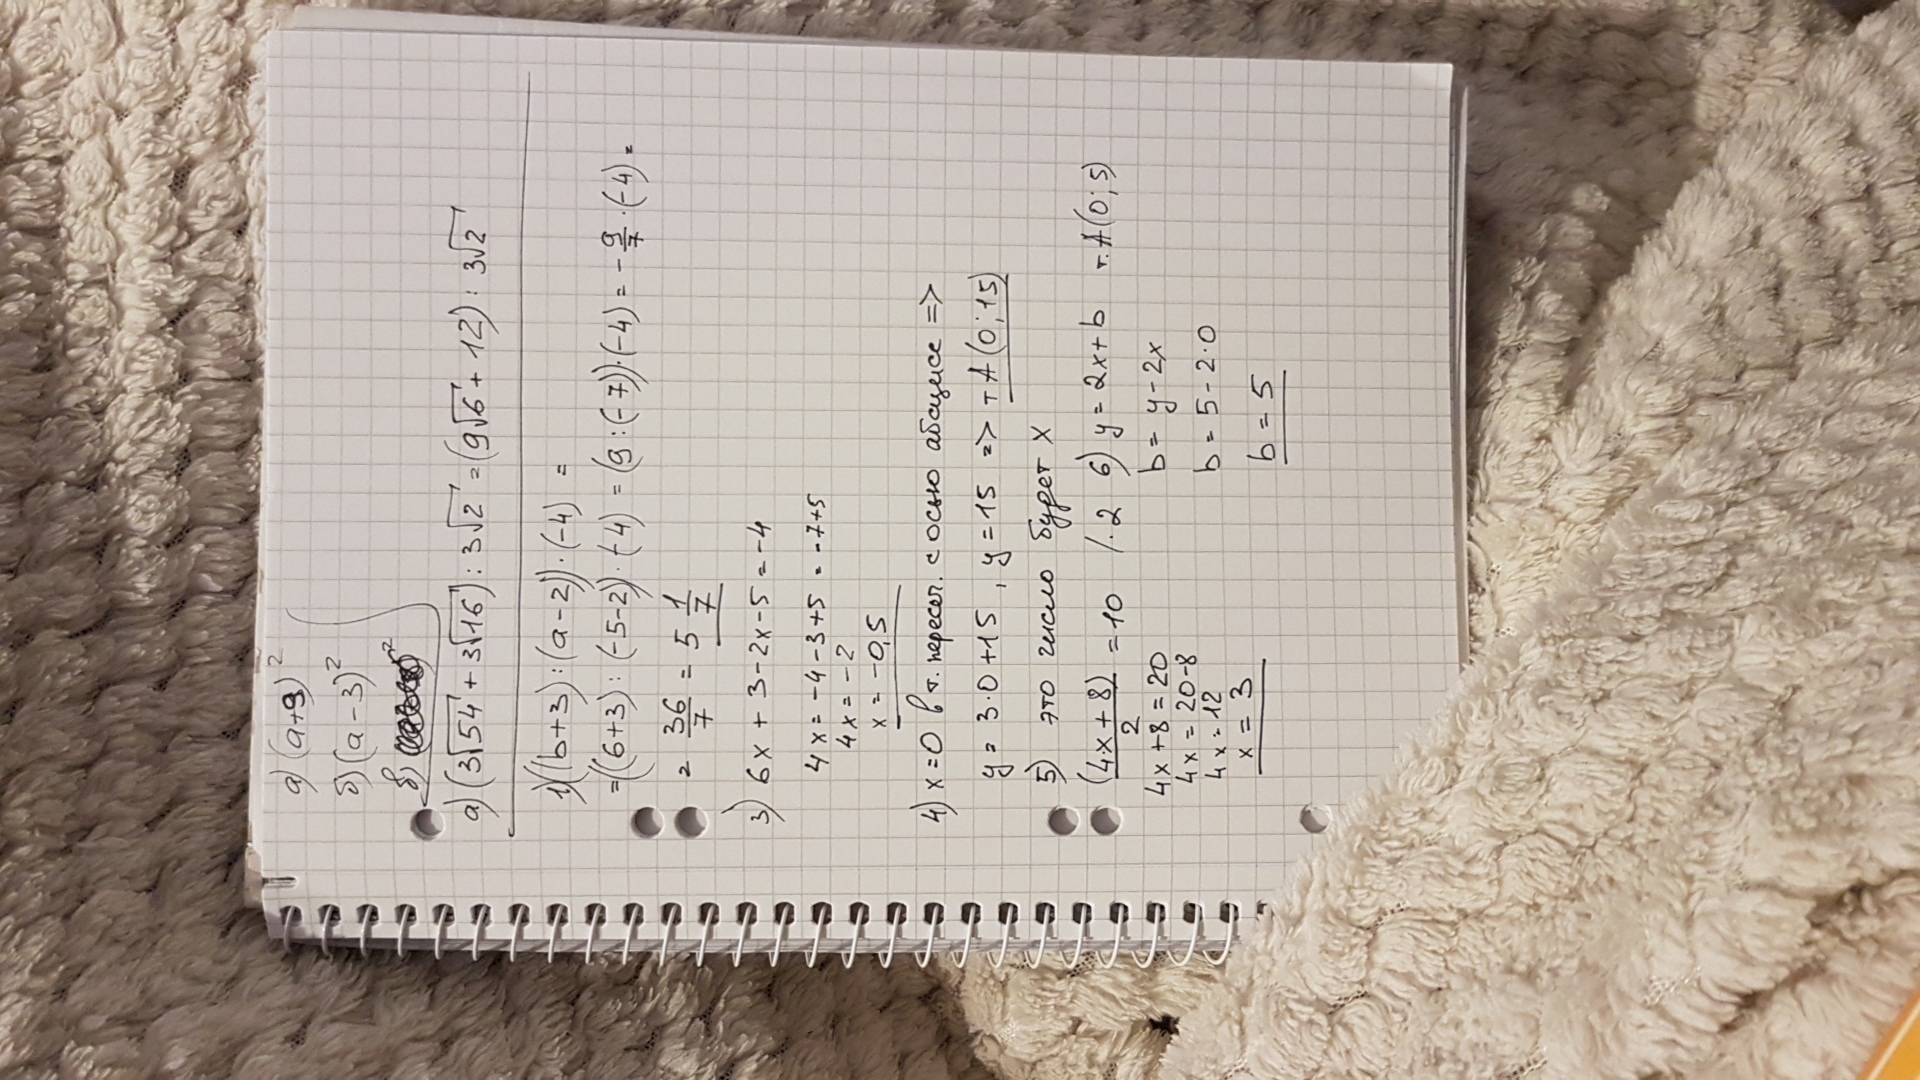 а) (a+9)²
б) (a-3)²
б)
а) (3√54 + 3√16) : 3√2 = (9√6 + 12) : 3√2
1) ((b+3) : (a-2)) · (-4) =
= ((6+3) : (-5-2)) · (-4) = (9 : (-7)) · (-4) = - 9/7 · (-4) =
= 36/7 = 5 1/7
3) 6x + 3 - 2x - 5 = -4
4x = -4 - 3 + 5 = -7+5
4x = -2
x = -0,5
4) x = 0 в т. пересеч. с осью абсцисс =>
y = 3·0+15, y = 15 => т A (0; 15)
5) это число будет x
(4·x + 8)/2 = 10 /·2
4x + 8 = 20
4x = 20-8
4x = 12
x = 3
6) y = 2x + b т. A (0; 5)
b = y - 2x
b = 5 - 2·0
b = 5